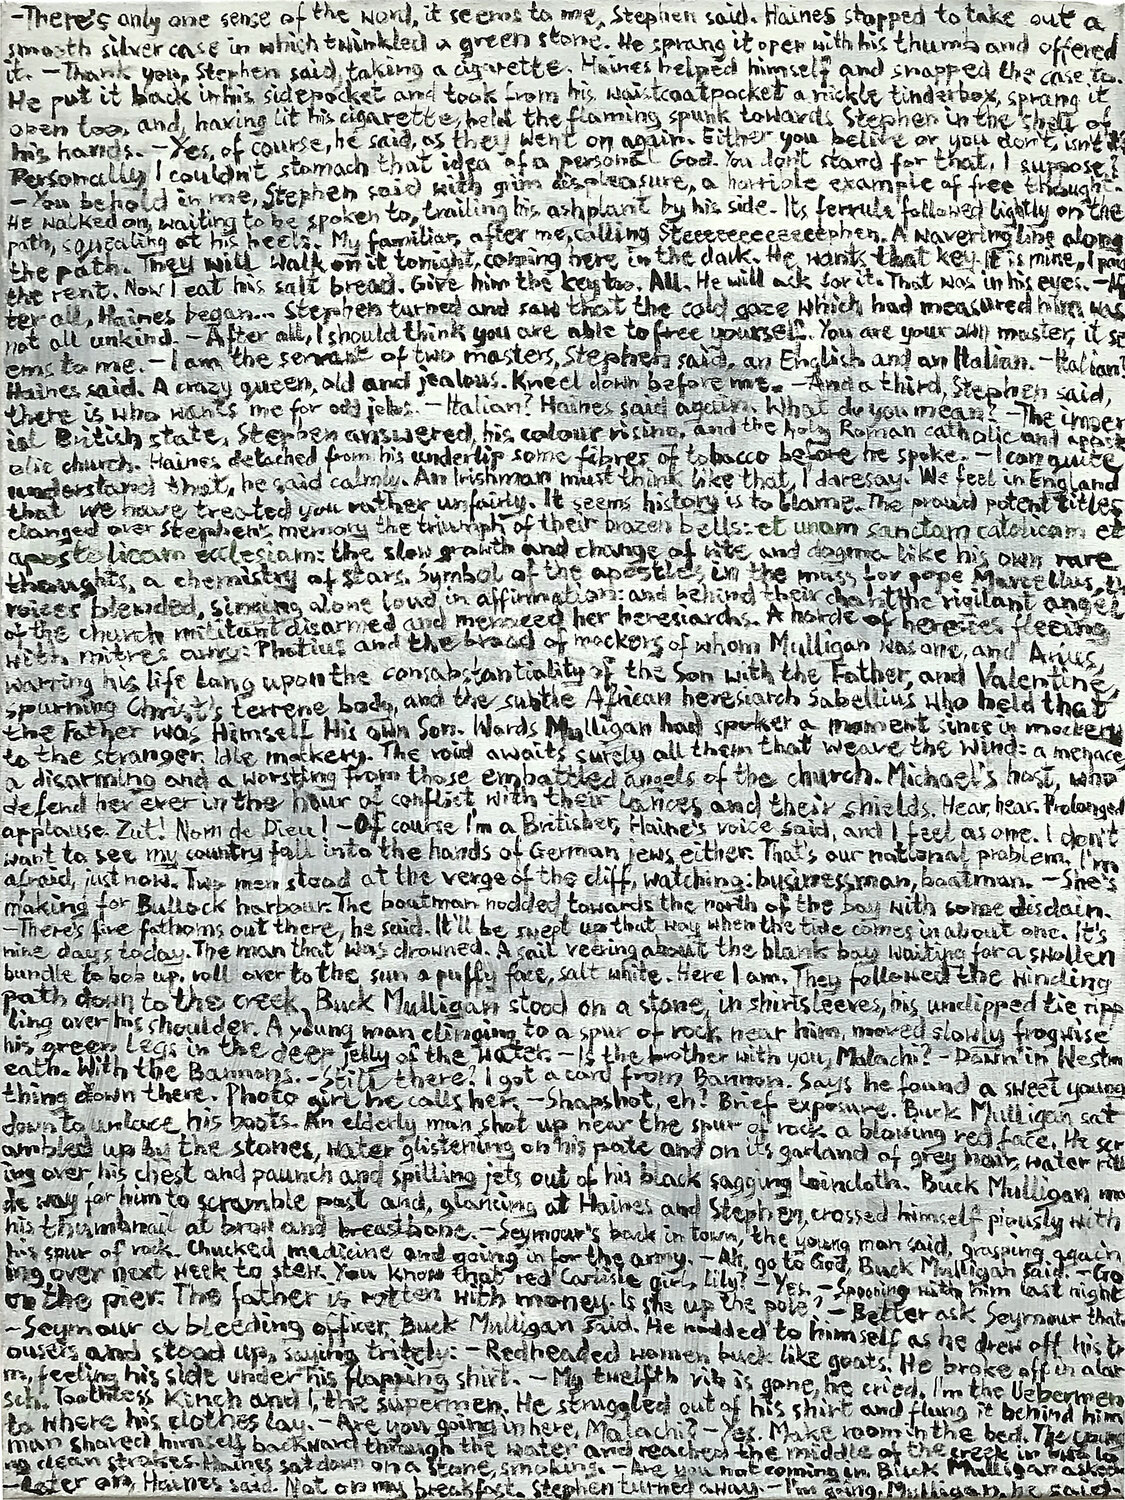 -There's only one sense of the word, it seems to me, Stephen said. Haines stopped to take out a
smooth silver case in which twinkled a green stone. He sprang it open with his thumb and offered
it. -Thank you, Stephen said, taking a cigarette. Haines helped himself and snapped the case to.
He put it back in his sidepocket and took from his waistcoatpocket a nickle tinderbox, sprang it
open too, and, having lit his cigarette, held the flaming spunk towards Stephen in the shell of
his hands. -Yes, of course, he said, as they went on again. Either you belive or you don't, isn't it?
Personally I couldn't stomach that idea of a personal God. You don't stand for that, I suppose?
-You behold in me, Stephen said with grim displeasure, a horrible example of free thought.
He walked on, waiting to be spoken to, trailing his ashplant by his side. Its ferrule followed lightly on the
path, squealing at his heels. My familiar, after me, calling Steeeeeeeeeeeephen. A wavering line along
the path. They will walk on it tonight, coming here in the dark. He wants that key. It is mine, I paid
the rent. Now I eat his salt bread. Give him the key too. All. He will ask for it. That was in his eyes. -Af
ter all, Haines began... Stephen turned and saw that the cold gaze which had measured him was
not all unkind. -After all, I should think you are able to free yourself. You are your own master, it se
ems to me. -I am the servant of two masters, Stephen said, an English and an Italian. -Italian?
Haines said. A crazy queen, old and jealous. Kneel down before me. -And a third, Stephen said,
there is who wants me for odd jobs. -Italian? Haines said again. What do you mean? -The imper
ial British state, Stephen answered, his colour rising, and the holy Roman catholic and apost
olic church. Haines detached from his underlip some fibres of tobacco before he spoke. -I can quite
understand that, he said calmly. An Irishman must think like that, I daresay. We feel in England
that we have treated you rather unfairly. It seems history is to blame. The proud potent titles
clanged over Stephen's memory the triumph of their brazen bells: et unam sanctam catolicam et
apostolicam ecclesiam: the slow growth and change of rite and dogma like his own rare
thoughts, a chemistry of stars. Symbol of the apostles in the mass for pope Marcellus, the
voices blended, singing alone loud in affirmation: and behind their chant the vigilant angel
of the church militant disarmed and menaced her heresiarchs. A horde of heresies fleeing
with mitres awry: Photius and the brood of mockers of whom Mulligan was one, and Arius,
warring his life long upon the consabstantiality of the Son with the Father, and Valentine,
spurning Christ's terrene body, and the subtle African heresiarch Sabellius who held that
the Father was Himself His own Son. Words Mulligan had spoken a moment since in mockery
to the stranger. Idle mockery. The void awaits surely all them that weave the wind: a menace,
a disarming and a worsting from those embattled angels of the church. Michael's host, who
defend her ever in the hour of conflict with their lances and their shields. Hear, hear. Prolonged
applause. Zut! Nom de Dieu! -Of course I'm a Britisher, Haine's voice said, and I feel as one. I don't
want to see my country fall into the hands of German jews, either. That's our national problem, I'm
afraid, just now. Two men stood at the verge of the cliff, watching: businessman, boatman. -She's
making for Bullock harbour. The boatman nodded towards the north of the bay with some disdain.
-There's five fathoms out there, he said. It'll be swept up that way when the tide comes in about one. It's
nine days today. The man that was drowned. A sail veering about the blank bay waiting for a swollen
bundle to bob up, roll over to the sun a puffy face, salt white. Here I am. They followed the winding
path down to the creek, Buck Mulligan stood on a stone, in shirtsleeves, his unclipped tie ripp
ling over his shoulder. A young man clinging to a spur of rock near him, moved slowly frogwise
his green legs in the deep jelly of the water. -Is the brother with you, Malachi? -Down in Westm
eath. With the Bannons. -Still there? I got a card from Bannon. Says he found a sweet young
thing down there. Photo girl he calls her. -Snapshot, eh? Brief exposure. Buck Mulligan sat
down to unlace his boots. An elderly man shot up near the spur of rock a blowing red face. He scr
ambled up by the stones, water glistening on his pate and on its garland of grey hair, water rill
ing over his chest and paunch and spilling jets out of his black sagging loincloth. Buck Mulligan ma
de way for him to scramble past and, glancing at Haines and Stephen, crossed himself piously with
his thumbnail at brow and breastbone. -Seymour's back in town, the young man said, grasping again
his spur of rock. Chucked medicine and going in for the army. -Ah, go to God, Buck Mulligan said. -Go
ing over next week to stew. You know that red Carlisle girl, Lily? -Yes. -Spooning with him last night
on the pier. The father is rotten with money. Is she up the pole? -Better ask Seymour that.
-Seymour a bleeding officer, Buck Mulligan said. He nodded to himself as he drew off his tr
ousers and stood up, saying tritely: -Redheaded women buck like goats. He broke off in alar
m, feeling his side under his flapping shirt. -My twelfth rib is gone, he cried. I'm the Uebermen
sch. Toothless Kinch and I, the supermen. He struggled out of his shirt and flung it behind him
to where his clothes lay. -Are you going in here, Malachi? -Yes. Make room in the bed. The young
man shoved himself backward through the water and reached the middle of the creek in two lo
ng clean strokes. Haines sat down on a stone, smoking. -Are you not coming in, Buck Mulligan asked.
-Later on, Haines said. Not on my breakfast. Stephen turned away. -I'm going, Mulligan, he said.